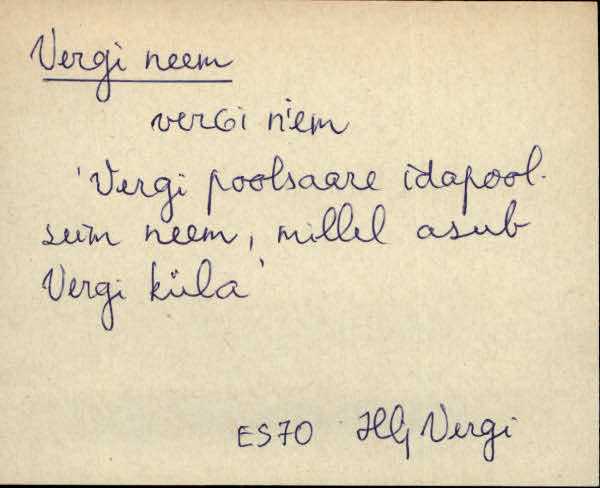 Vergi neem
verGi n'em
'Vergi poolsaare idapool-
seim neem, millel asub
Vergi küla'
ES70 Hlj Vergi